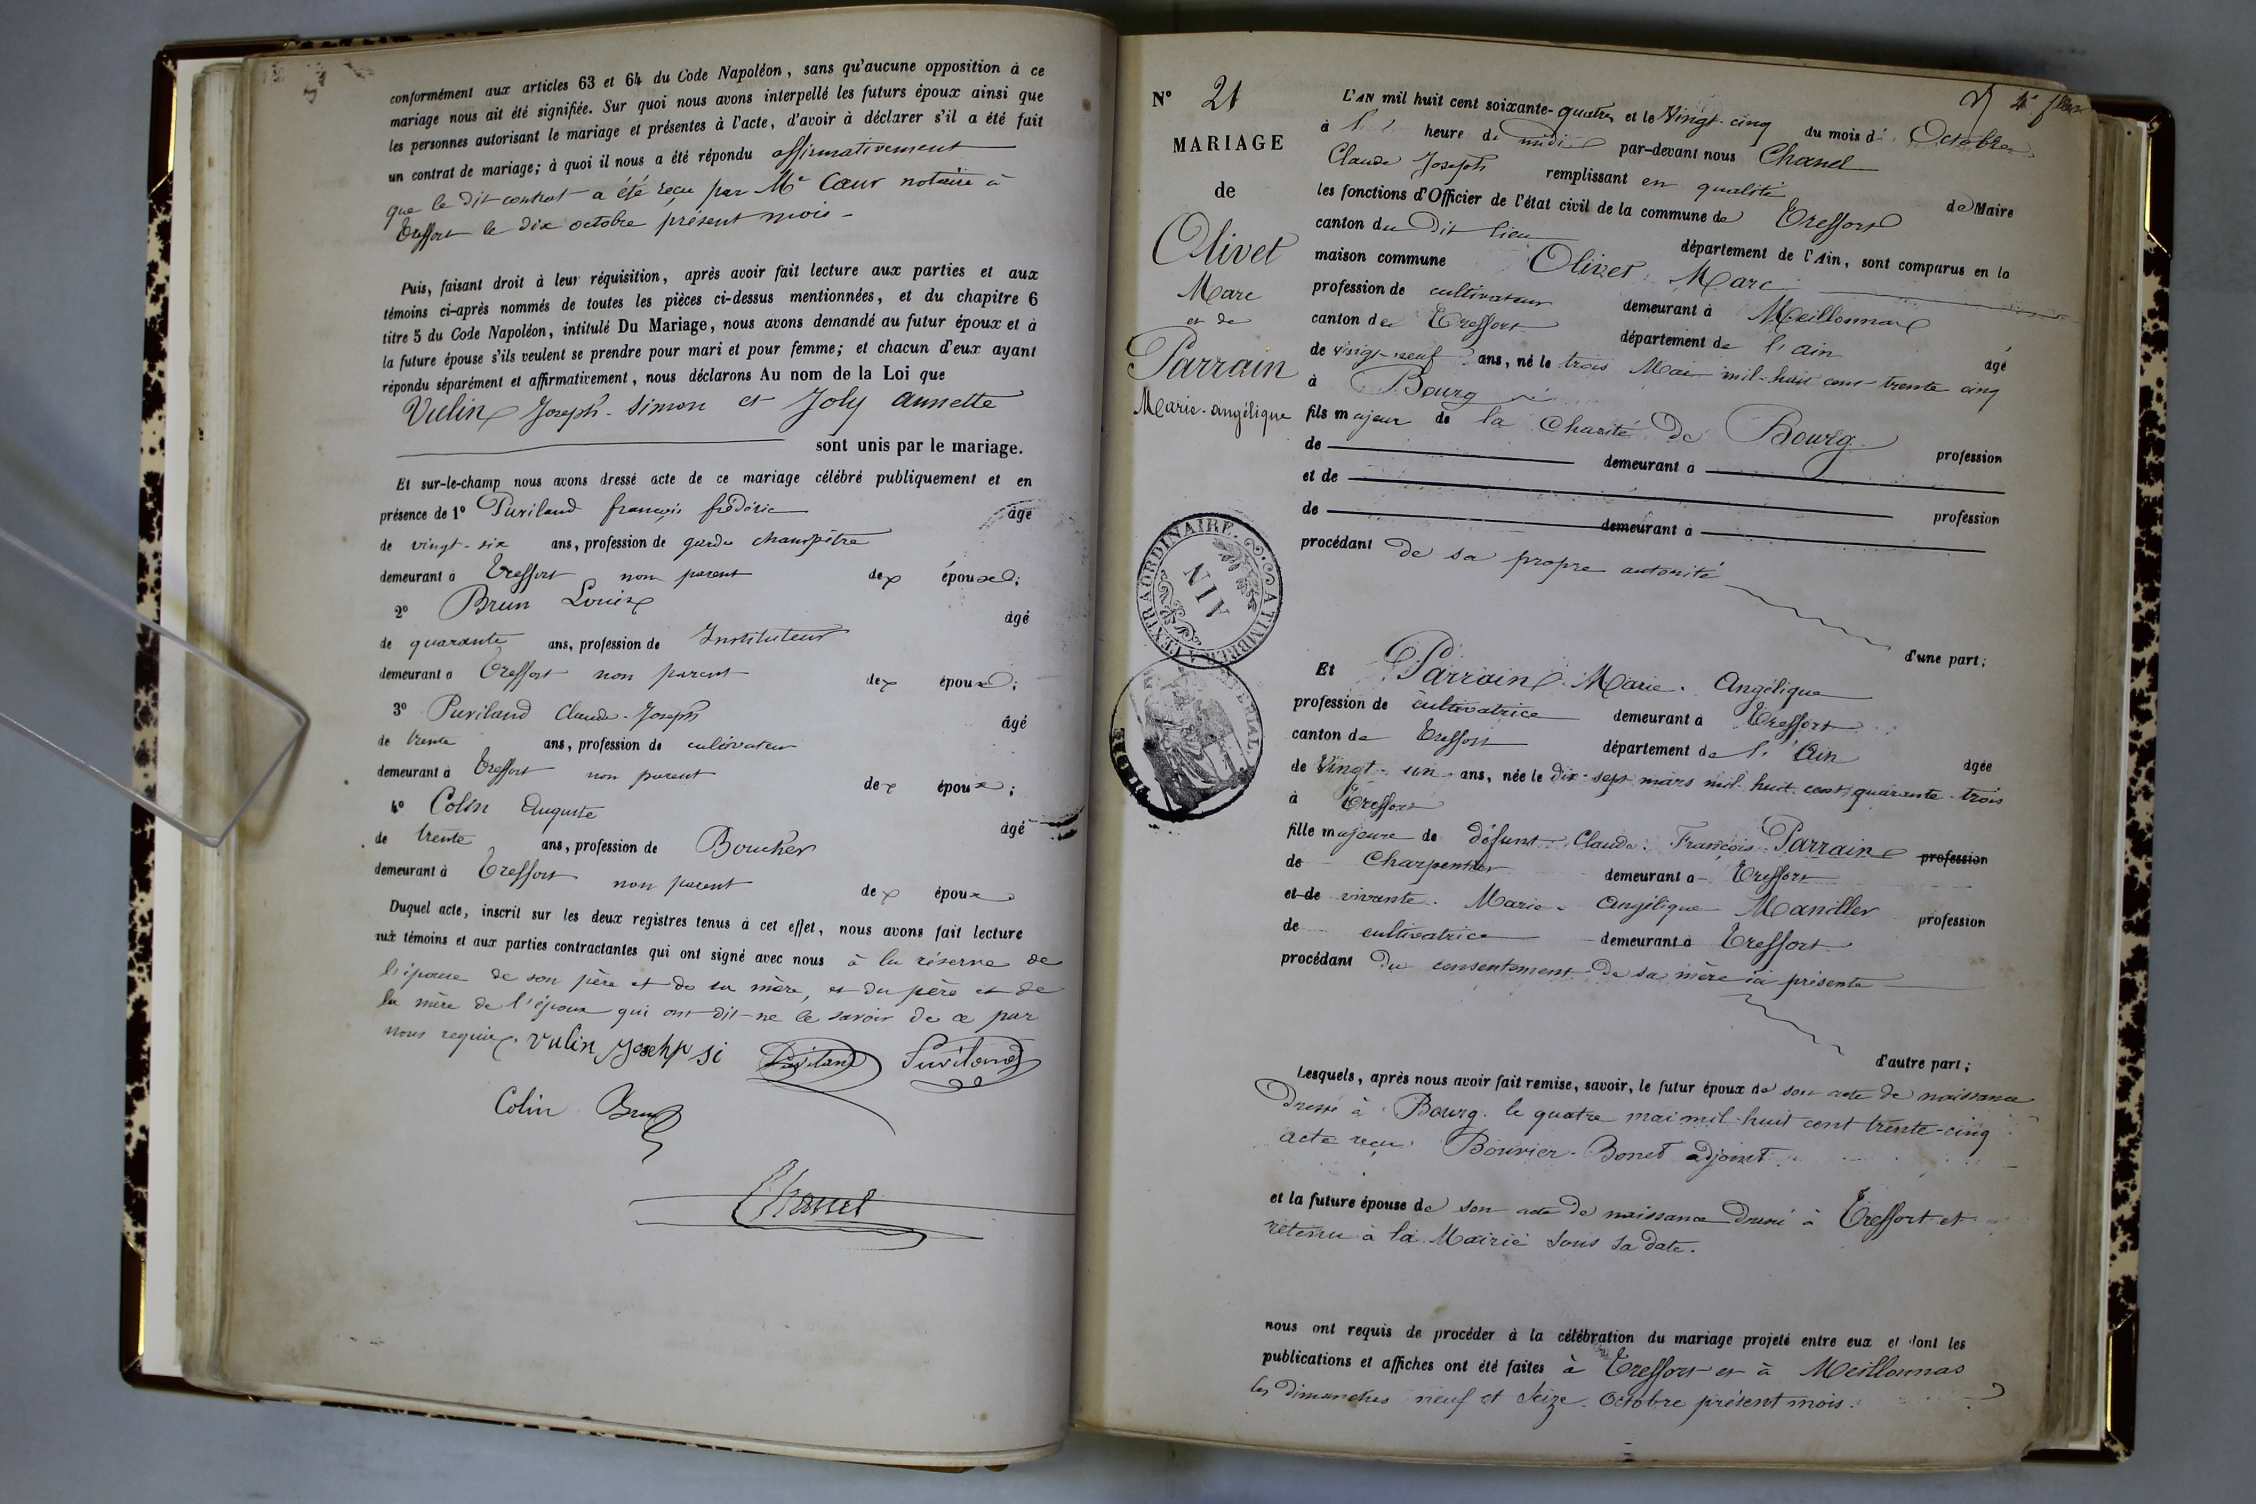 conformément aux articles 63 et 64 du Code Napoléon, sans qu'aucune opposition à ce
mariage nous ait été signifiée. Sur quoi nous avons interpellé les futurs époux ainsi que
les personnes autorisant le mariage et présentes à l'acte, d'avoir à déclarer s'il a été fait
un contrat de mariage; à quoi il nous a été répondu affirmativement
que le dit contrat a été reçu par Me Cœur notaire à
Treffort le dix octobre présent mois
Puis, faisant droit à leur réquisition, après avoir fait lecture aux parties et aux
témoins ci-après nommés de toutes les pièces ci-dessus mentionnées, et du chapitre 6
titre 5 du Code Napoléon, intitulé Du Mariage, nous avons demandé au futur époux et à
la future épouse s'ils veulent se prendre pour mari et pour femme; et chacun d'eux ayant
répondu séparément et affirmativement, nous déclarons Au nom de la Loi que
Vulin Joseph-Simon et Joly annette
sont unis par le mariage.
Et sur-le-champ nous avons dressé acte de ce mariage célébré publiquement et en
présence de 1° Puviland françois frédéric âgé
de vingt-six ans, profession de garde champêtre
demeurant à Treffort non parent des époux;
2° Brun Louis âgé
de quarante ans, profession de Instituteur
demeurant à Treffort non parent des époux;
3° Puviland Claude-Joseph âgé
de trente ans, profession de cultivateur
demeurant à Treffort non parent des époux;
4° Colin Auguste âgé
de trente ans, profession de Boucher
demeurant à Treffort non parent des époux
Duquel acte, inscrit sur les deux registres tenus à cet effet, nous avons fait lecture
aux témoins et aux parties contractantes qui ont signé avec nous à la réserve de
l'épouse de son père et de sa mère, et du père et de
la mère de l'époux qui ont dit ne le savoir de ce par
nous requis. Vulin Josehp si Puviland Puviland
Colin Brun
Chanel
N° 21
MARIAGE
de
Olivet
Marc
et de
Parrain
Marie-angélique
L'AN mil huit cent soixante-quatre et le Vingt-cinq du mois d' Octobre
à heure de midi par-devant nous Chanel
Claude Joseph remplissant en qualité de Maire
les fonctions d'Officier de l'état civil de la commune de Treffort
canton du dit lieu département de l'Ain, sont comparus en la
maison commune Olivet Marc
profession de cultivateur demeurant à Meillonnas
canton de Treffort département de l'ain âgé
de vingt-neuf ans, né le trois Mai mil-huit cent-trente cinq
à Bourg
fils majeur de la Charité de Bourg profession
de demeurant à
et de profession
de demeurant à
procédant de sa propre autorité
d'une part;
L'EXTRAORDINAIRE. A TIMBRER
AIN
IMPERIAL
Et Parrain Marie-Angélique
profession de cultivatrice demeurant à Treffort
canton de Treffort département de l'Ain âgée
de Vingt-un ans, née le dix-sept mars mil huit cent quarante-trois
à Treffort
fille majeure de défunt Claude-François Parrain profession
de Charpentier demeurant à Treffort
et de vivante Marie-Angélique Maniller profession
de cultivatrice demeurant à Treffort
procédant du consentement de sa mère ici présente
d'autre part;
Lesquels, après nous avoir fait remise, savoir, le futur époux de son acte de naissance
dressé à Bourg le quatre mai mil-huit cent trente-cinq
acte reçu Bouvier-Bonet adjoint
et la future épouse de son acte de naissance dressé à Treffort et
retenu à la Mairie sous sa date.
nous ont requis de procéder à la célébration du mariage projeté entre eux et dont les
publications et affiches ont été faites à Treffort et à Meillonnas
les dimanches neuf et seize Octobre présent mois.